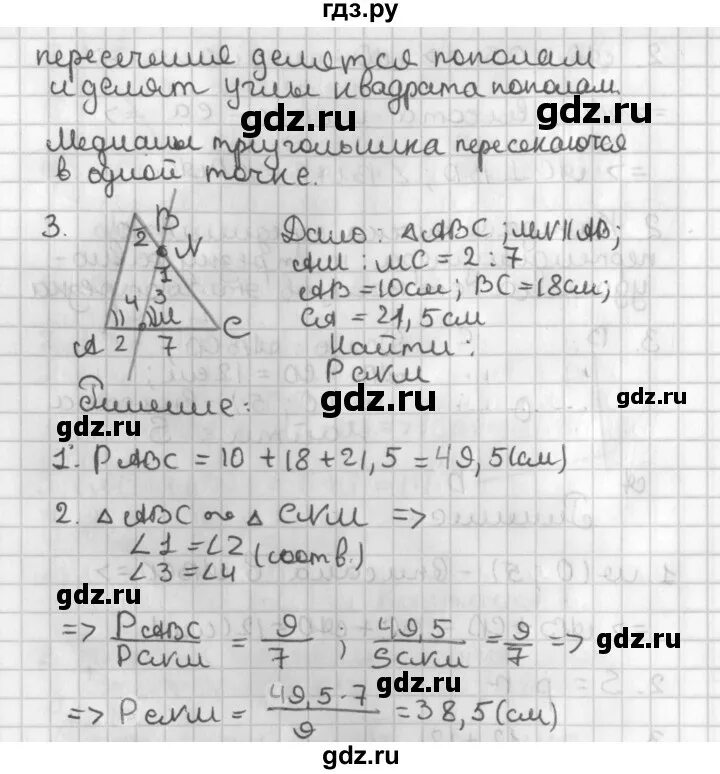 гдз.ру
пересечение делятся пополам
и делят углы квадрата пополам.
gdz.ru
gdz.ru
Медианы треугольника пересекаются
в одной точке.
3.
B
2
N
1
4
3
M
A
2
7
C
Дано: △ABC; MN∥AB;
AM : MC = 2 : 7
AB = 10см; BC = 18см;
CA = 21,5 см
Найти:
P CNM
gdz.ru
gdz.ru
Решение:
gdz.ru
1. P ABC = 10 + 18 + 21,5 = 49,5 (см)
2. △ ABC ∾ △ CNM =>
∠1 = ∠2 (соотв.)
∠3 = ∠4
gdz.ru
=> P ABC / P CNM = 9/7 ; 49,5 / S CNM = 9/7 =>
gdz.ru
gdz.ru
=> P CNM = 49,5 · 7 / 9 = 38,5 (см)
gdz.ru
gdz.ru